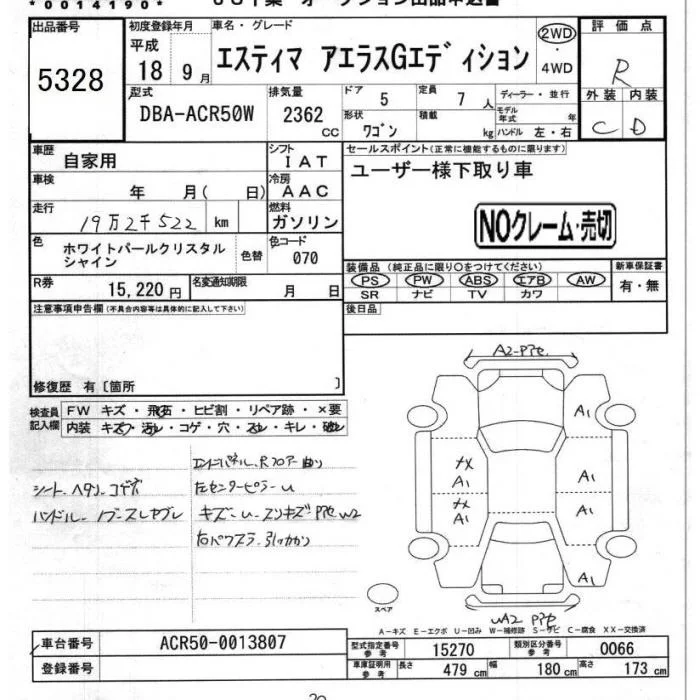 *0014190*
出品番号
5328
初度登録年月
平成
18 9月
車名・グレード
エスティマ アエラスGエディション
2WD
4WD
評価点
R
外装 内装
C D
型式
DBA-ACR50W
排気量
2362
cc
ドア
5
定員
7人
形状
ワゴン
積載
kg
ディーラー・並行
モデル年式 年
ハンドル 左・右
車歴
自家用
シフト
IAT
車検
年 月( 日)
冷房
AAC
走行
19万2千522 km
燃料
ガソリン
色
ホワイトパールクリスタル
シャイン
色替
色コード
070
R券
15,220円
名変通知期限
月 日
セールスポイント(正常に機能するものに限ります)
ユーザー様下取り車
NOクレーム・売切
装備品 (純正品に限り〇をつけてください)
PS PW ABS エアB AW
SR ナビ TV カワ
新車保証書
有・無
後日品
注意事項申告欄(不具合内容等は具体的に記入して下さい)
修復歴 有〔箇所 〕
検査員
記入欄
FW キズ・飛石・ヒビ割・リペア跡・×要
内装 キズ・汚レ・コゲ・穴・スレ・キレ・破レ
シート.ヘタリ.コゲ穴
エンドパネル.Rフロアー曲り
左センターピラーU
A1
A1
A1
A1
A1
A1
スペア
A-キズ E-エクボ U-凹み W-補修跡 S-サビ C-腐食 XX-交換済
車台番号
ACR50-0013807
登録番号
型式指定番号
参考
15270
類別区分番号
参考
0066
車庫証明用
参考
長さ 479 cm
幅 180 cm
高さ 173 cm